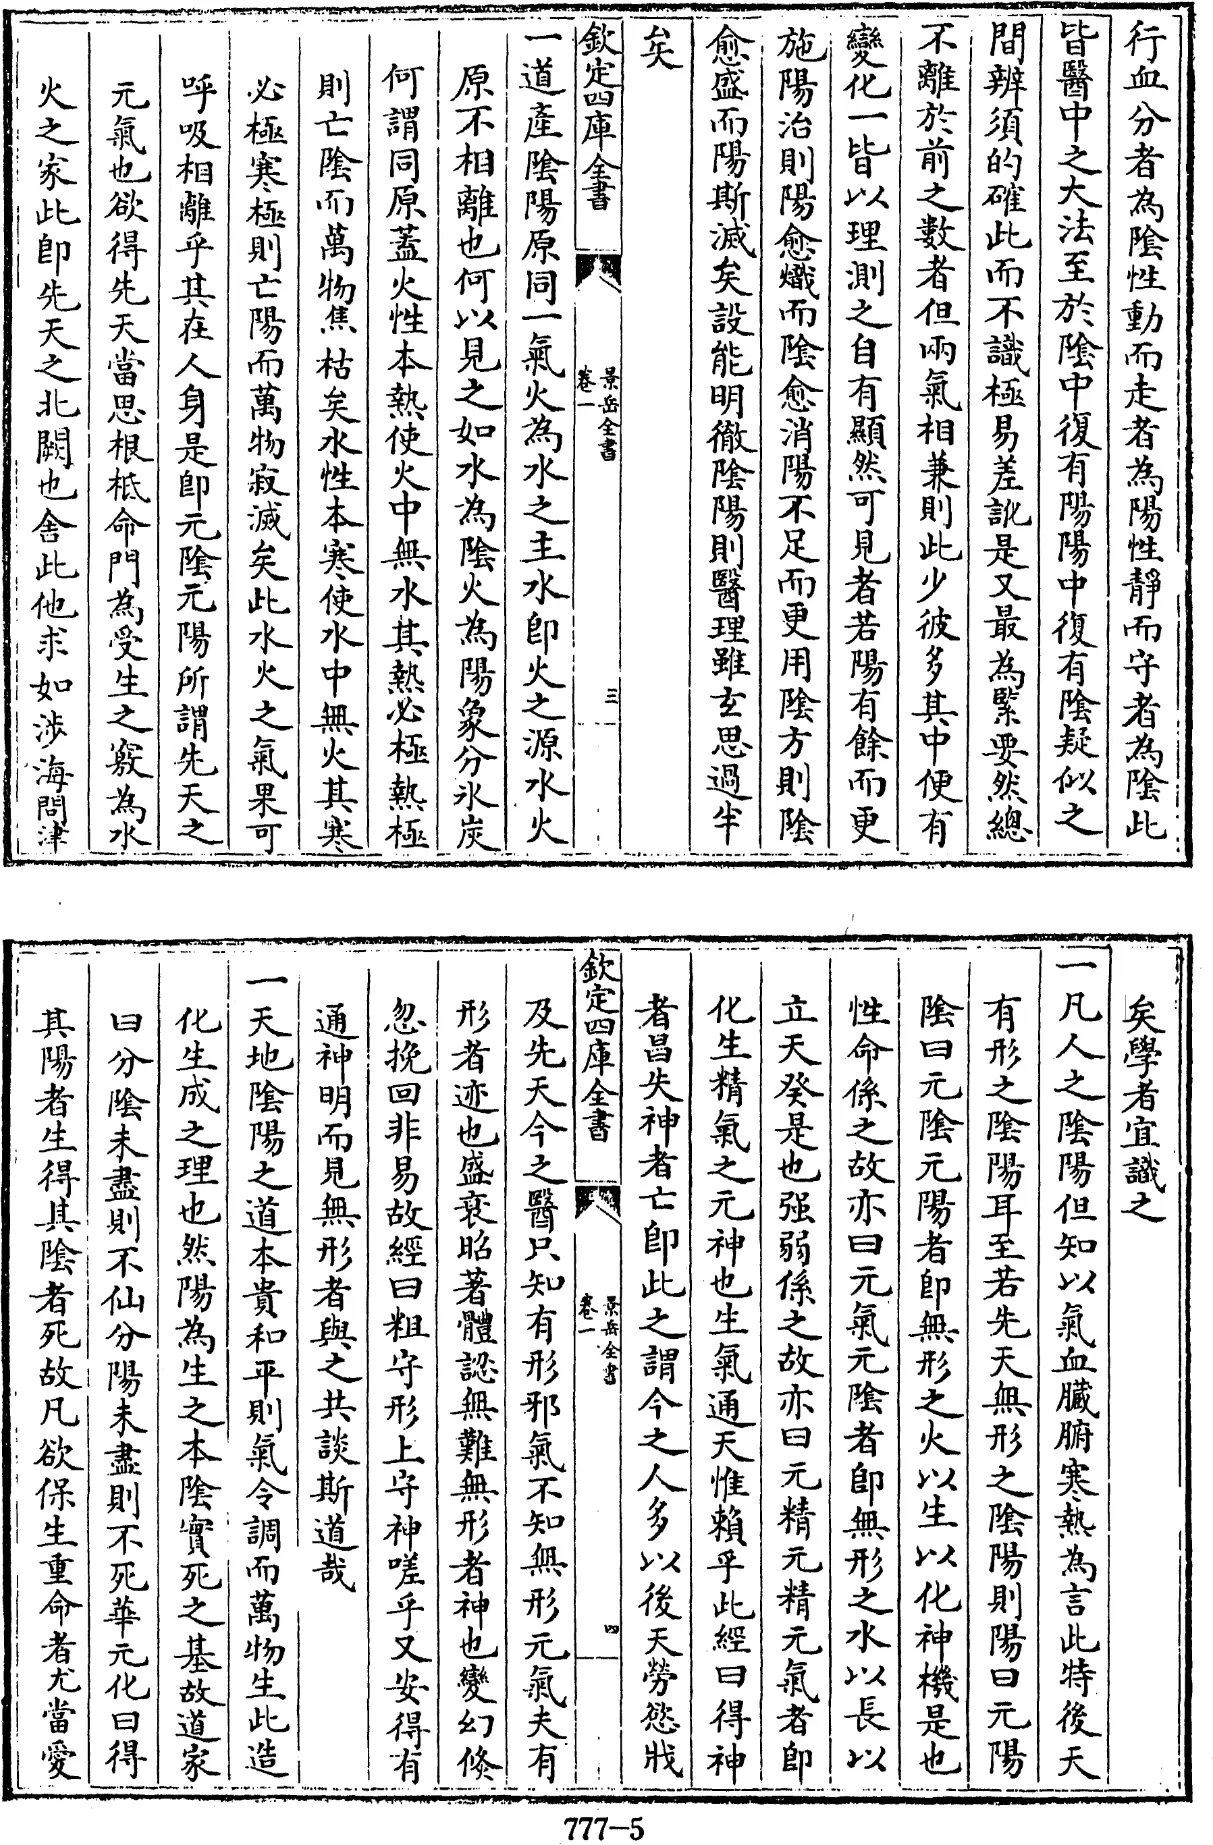 行血分者為陰性動而走者為陽性靜而守者為陰此
皆醫中之大法至於陰中復有陽陽中復有陰疑似之
間辨須的確此而不識極易差訛是又最為緊要然總
不離於前之數者但兩氣相兼則此少彼多其中便有
變化一皆以理測之自有顯然可見者若陽有餘而更
施陽治則陽愈熾而陰愈消陽不足而更用陰方則陰
愈盛而陽斯滅矣設能明徹陰陽則醫理雖玄思過半
矣
欽定四庫全書
景岳全書
卷一
三
一道產陰陽原同一氣火為水之主水即火之源水火
原不相離也何以見之如水為陰火為陽象分冰炭
何謂同原蓋火性本熱使火中無水其熱必極熱極
則亡陰而萬物焦枯矣水性本寒使水中無火其寒
必極寒極則亡陽而萬物寂滅矣此水火之氣果可
呼吸相離乎其在人身是即元陰元陽所謂先天之
元氣也欲得先天當思根柢命門為受生之竅為水
火之家此即先天之北闕也舍此他求如涉海問津
矣學者宜識之
一凡人之陰陽但知以氣血臟腑寒熱為言此特後天
有形之陰陽耳至若先天無形之陰陽則陽曰元陽
陰曰元陰元陽者即無形之火以生以化神機是也
性命係之故亦曰元氣元陰者即無形之水以長以
立天癸是也强弱係之故亦曰元精元精元氣者即
化生精氣之元神也生氣通天惟賴乎此經曰得神
者昌失神者亡即此之謂今之人多以後天勞慾戕
欽定四庫全書
景岳全書
卷一
四
及先天今之醫只知有形邪氣不知無形元氣夫有
形者迹也盛衰昭著體認無難無形者神也變幻倏
忽挽回非易故經曰粗守形上守神嗟乎又安得有
通神明而見無形者與之共談斯道哉
一天地陰陽之道本貴和平則氣令調而萬物生此造
化生成之理也然陽為生之本陰實死之基故道家
曰分陰未盡則不仙分陽未盡則不死華元化曰得
其陽者生得其陰者死故凡欲保生重命者尤當愛
777-5